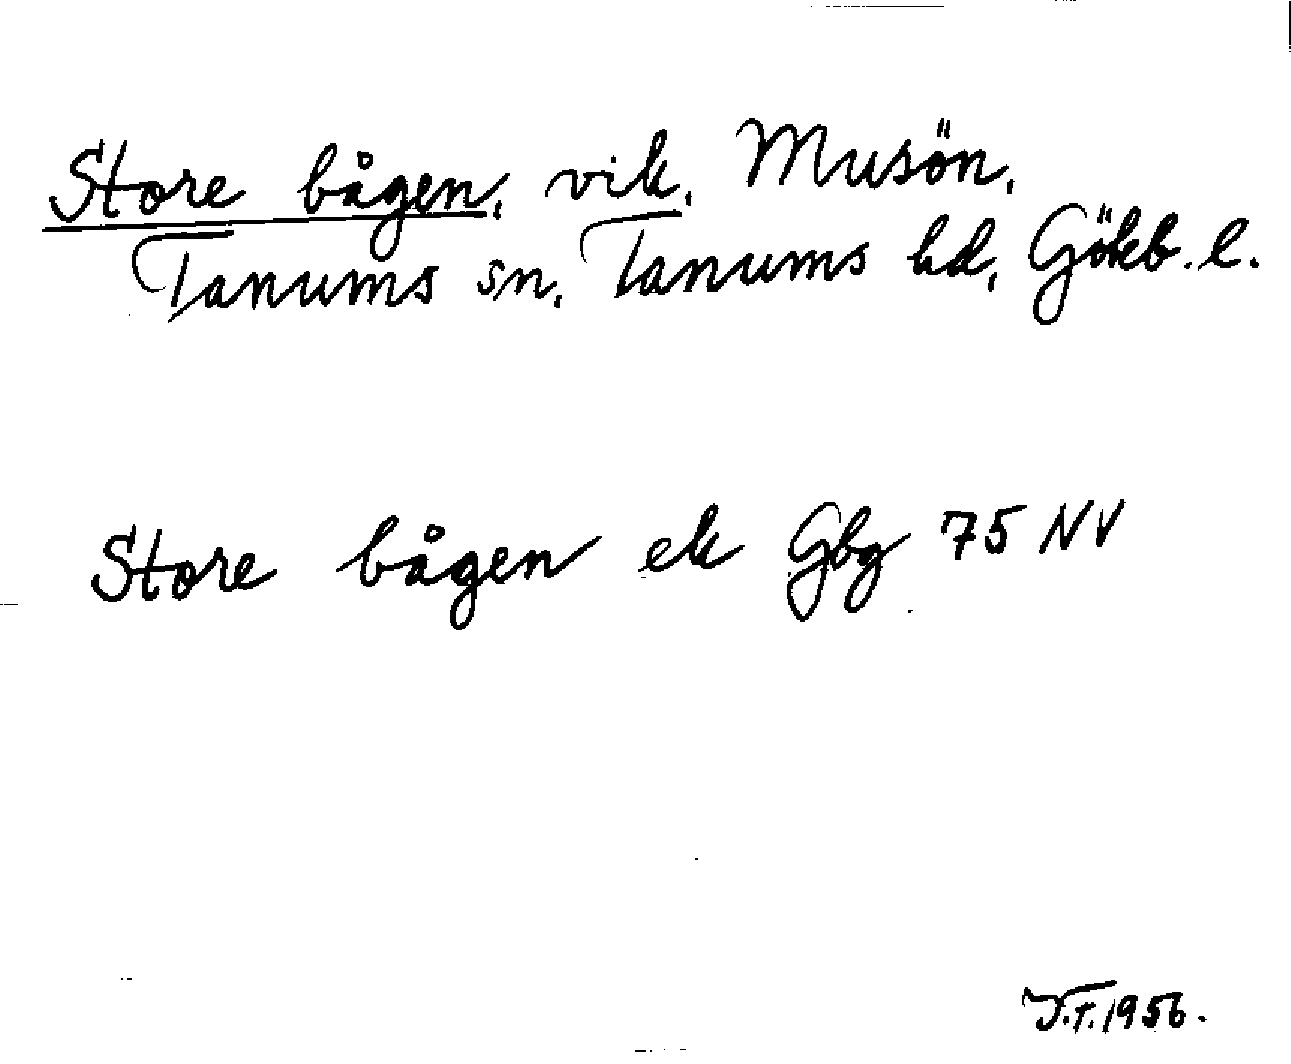 Store bågen, vik, Musön,
Tanums sn, Tanums hd, Gökb. l.
Store bågen ek Gbg 75 NV
J.F. 1956.